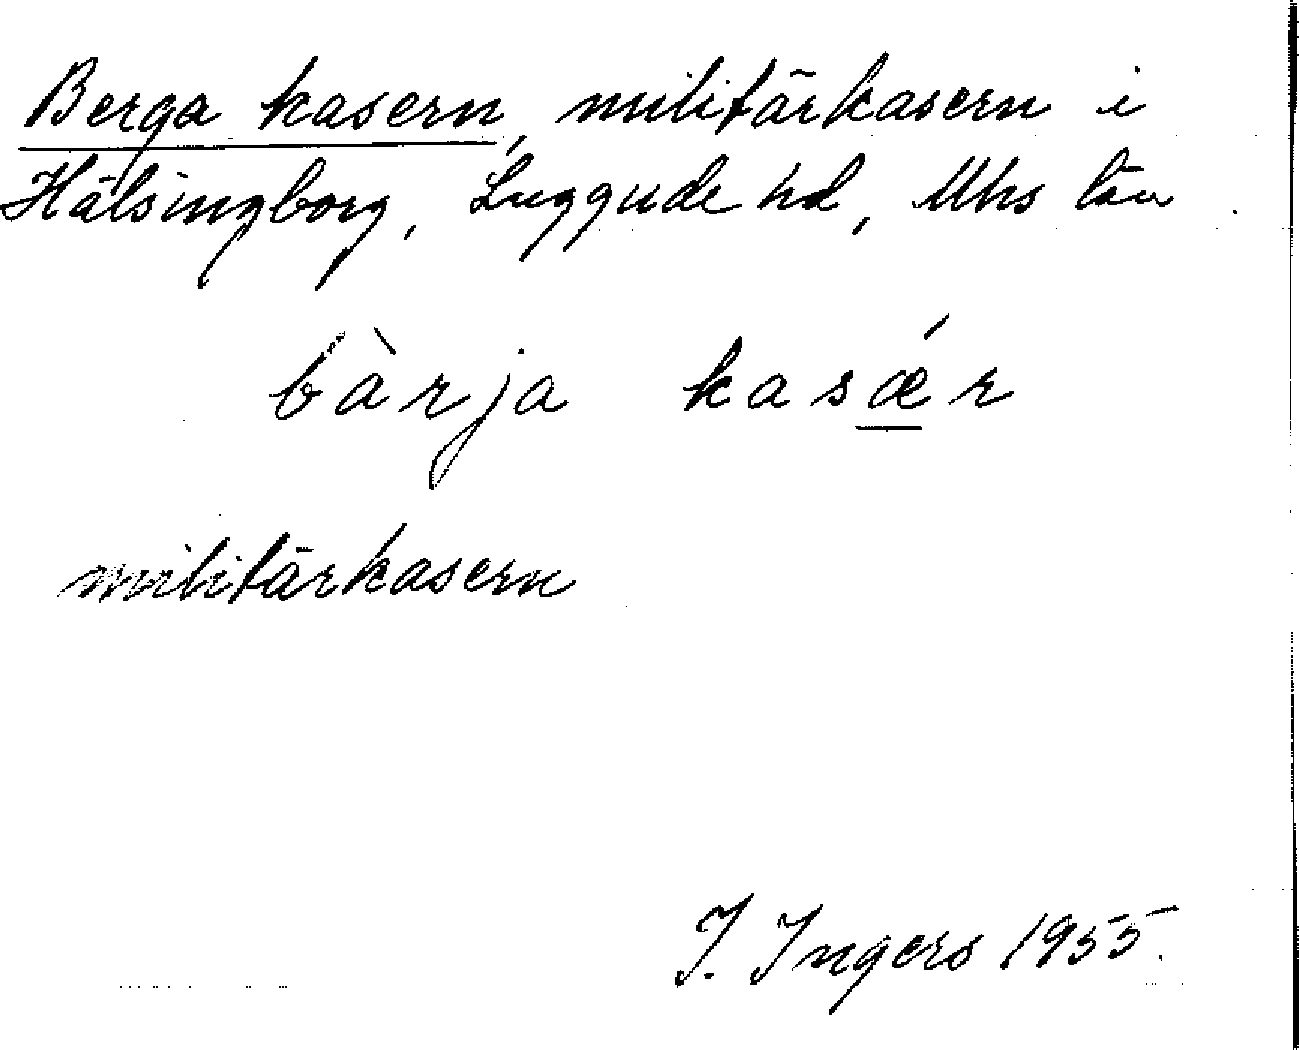 Berga kasern, militärkasern i
Hälsingborg, Luggude hd, Mhs län.
bàrja kasǽr
militärkasern
I. Ingers 1955.